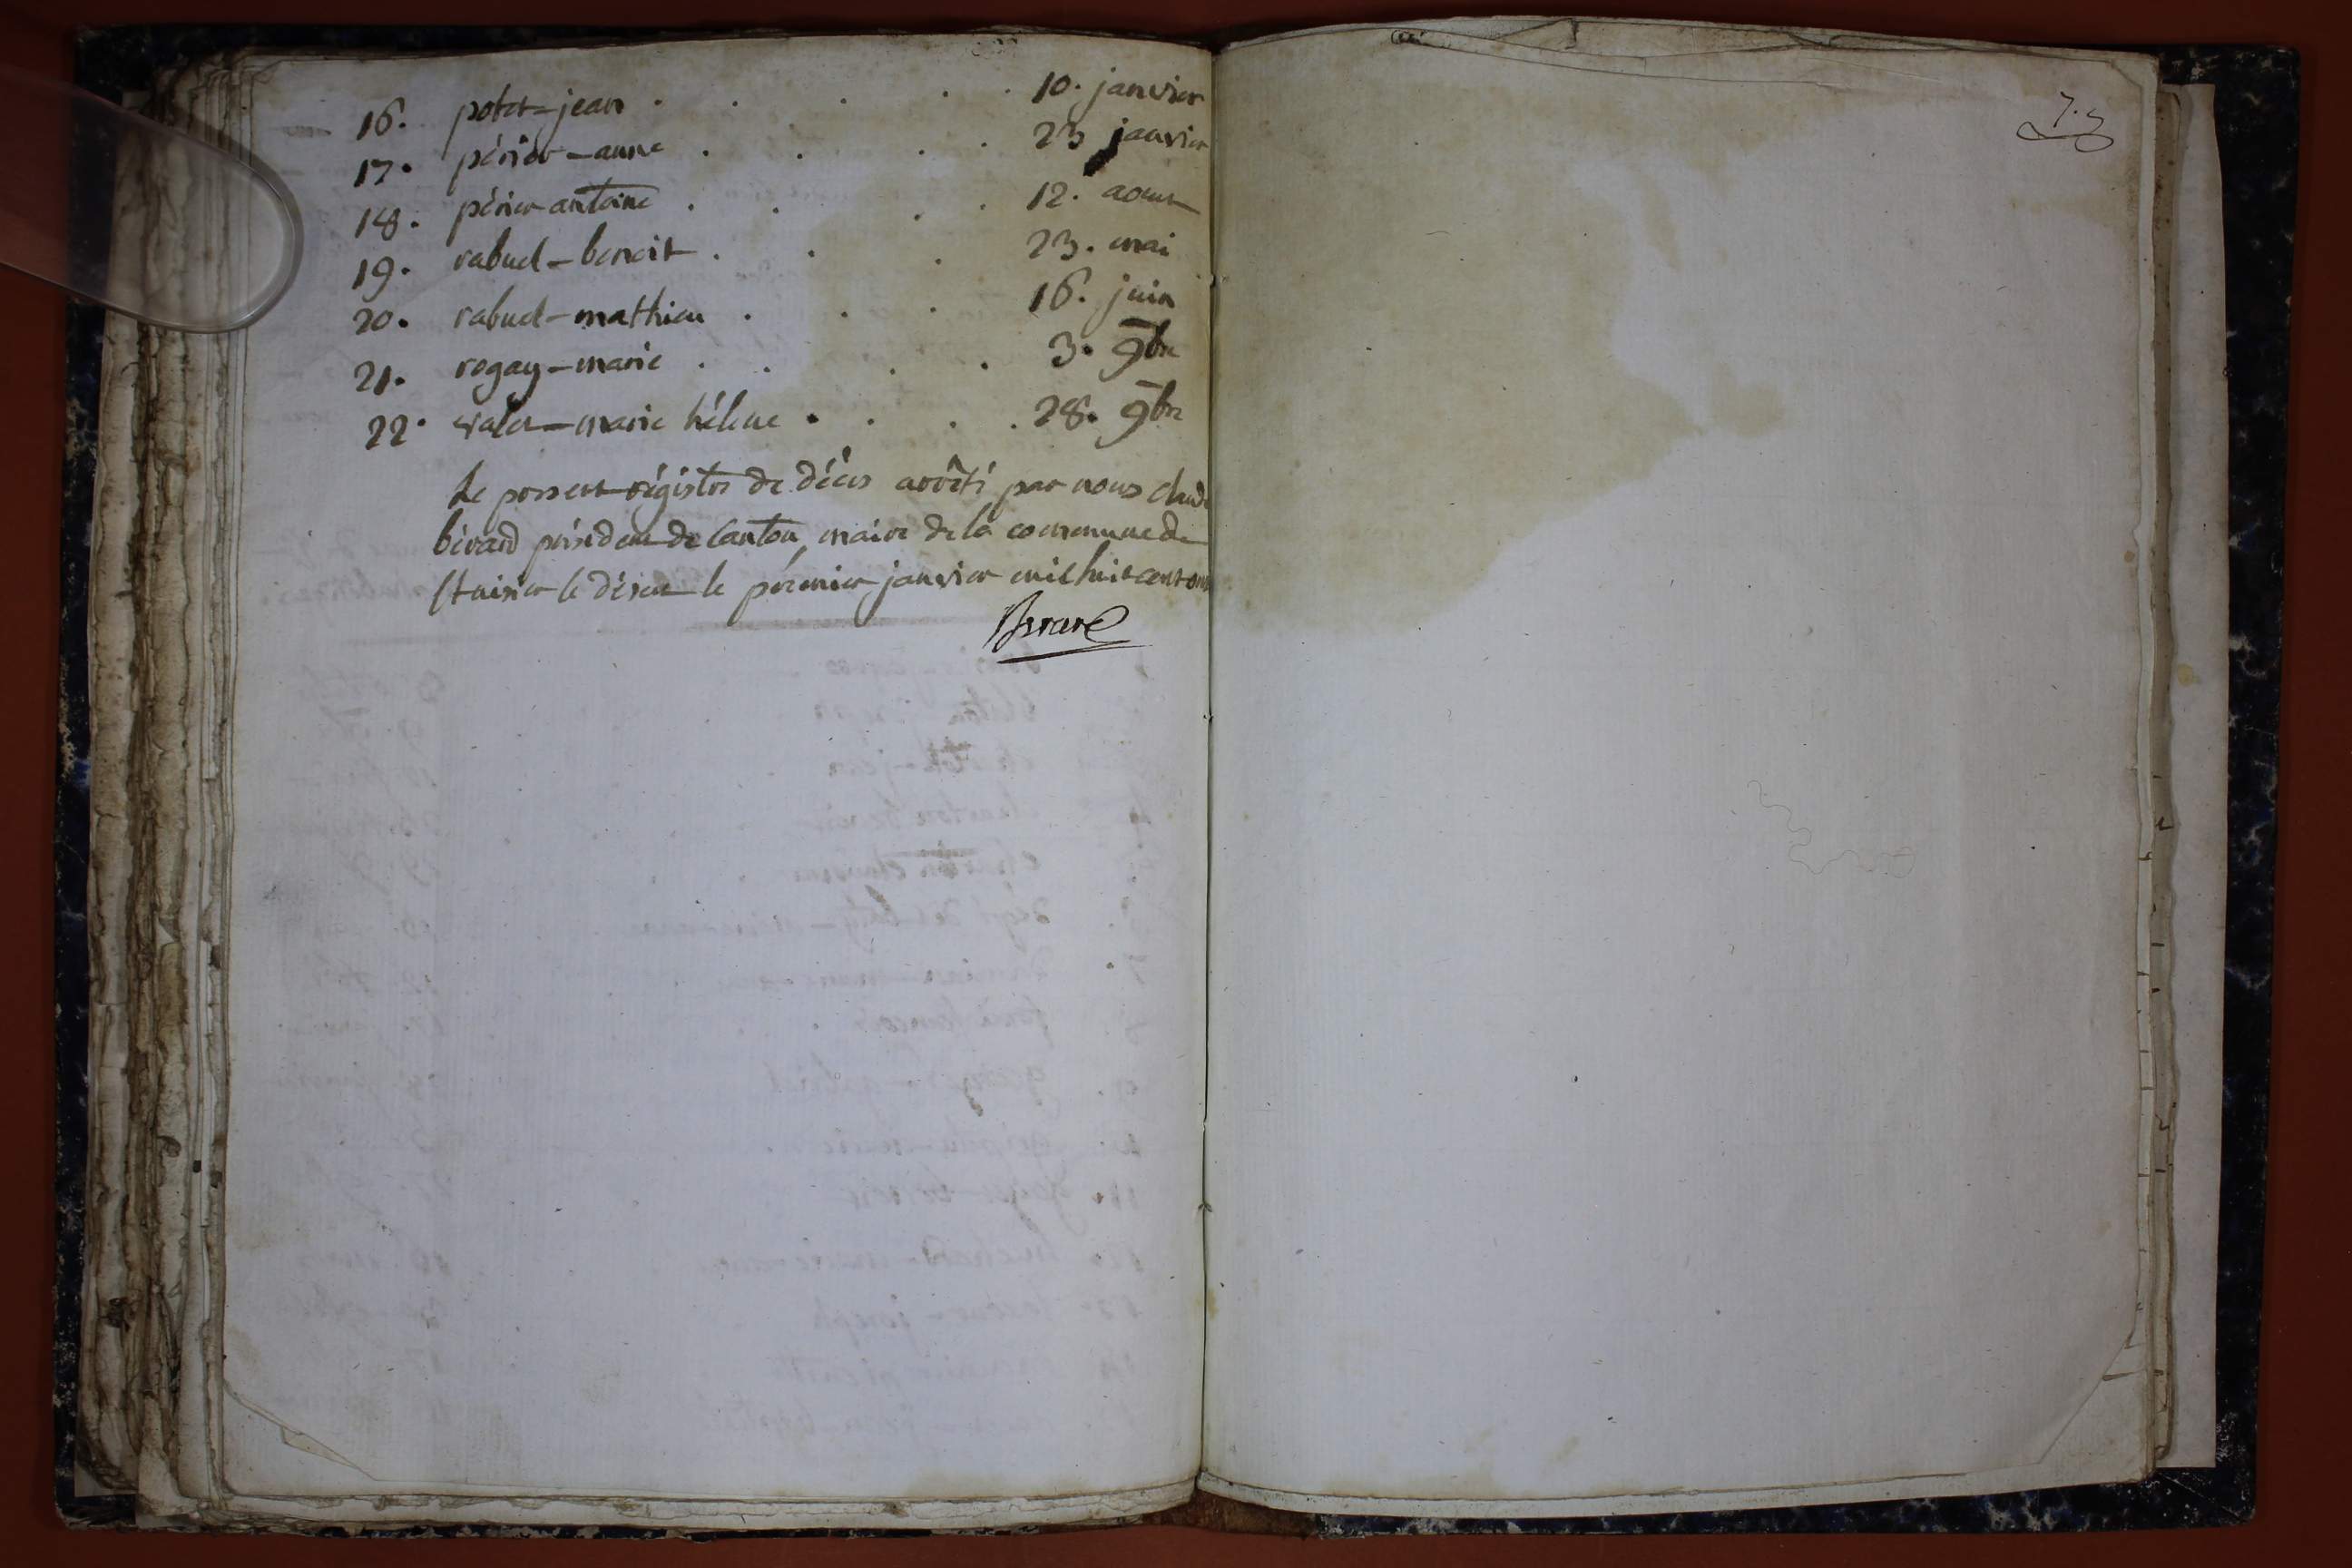 16. potet-jean . . . . 10. janvier
17. périer-anne . . . . 23 janvier
18. périer antoine . . . . 12. aoust
19. rabuel-benoit . . . 23. mai
20. rabuel-mathieu . . . 16. juin
21. rogay-marie . . . . 3. 9bre
22. valet-marie hélene . . . . 28. 9bre
Le present régistre de décès arrêté par nous claude
bérard présideut de Canton, maire de la commune de
St uisier le désert le prémier janvier mil huit cent onze
Berard